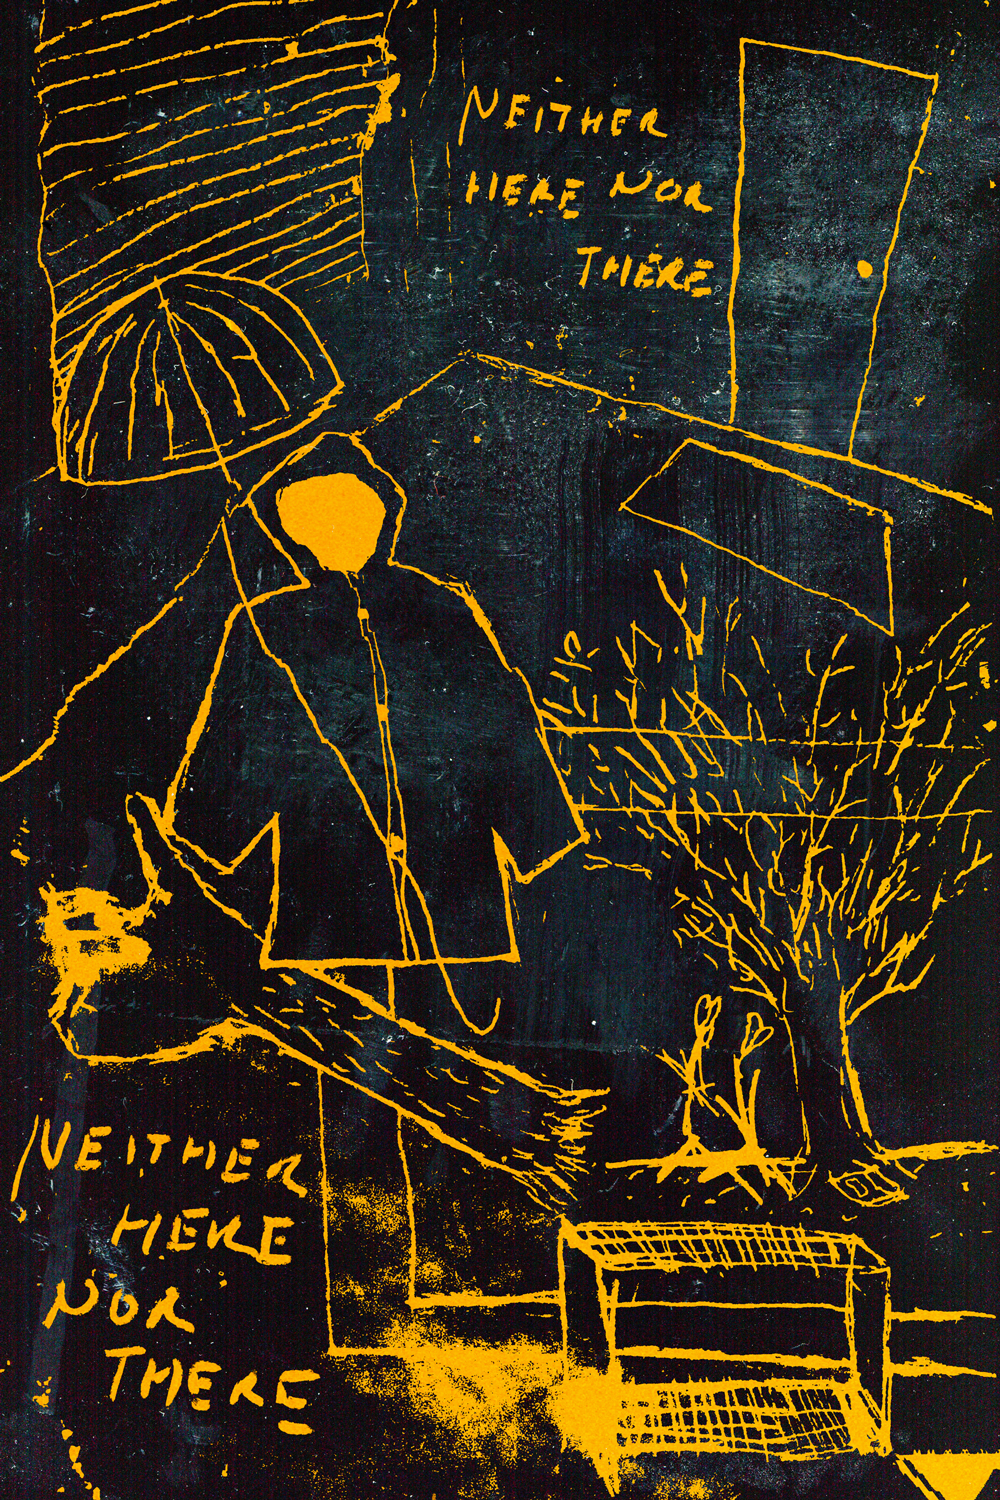 NEITHER
HERE NOR
THERE
NEITHER
HERE
NOR
THERE